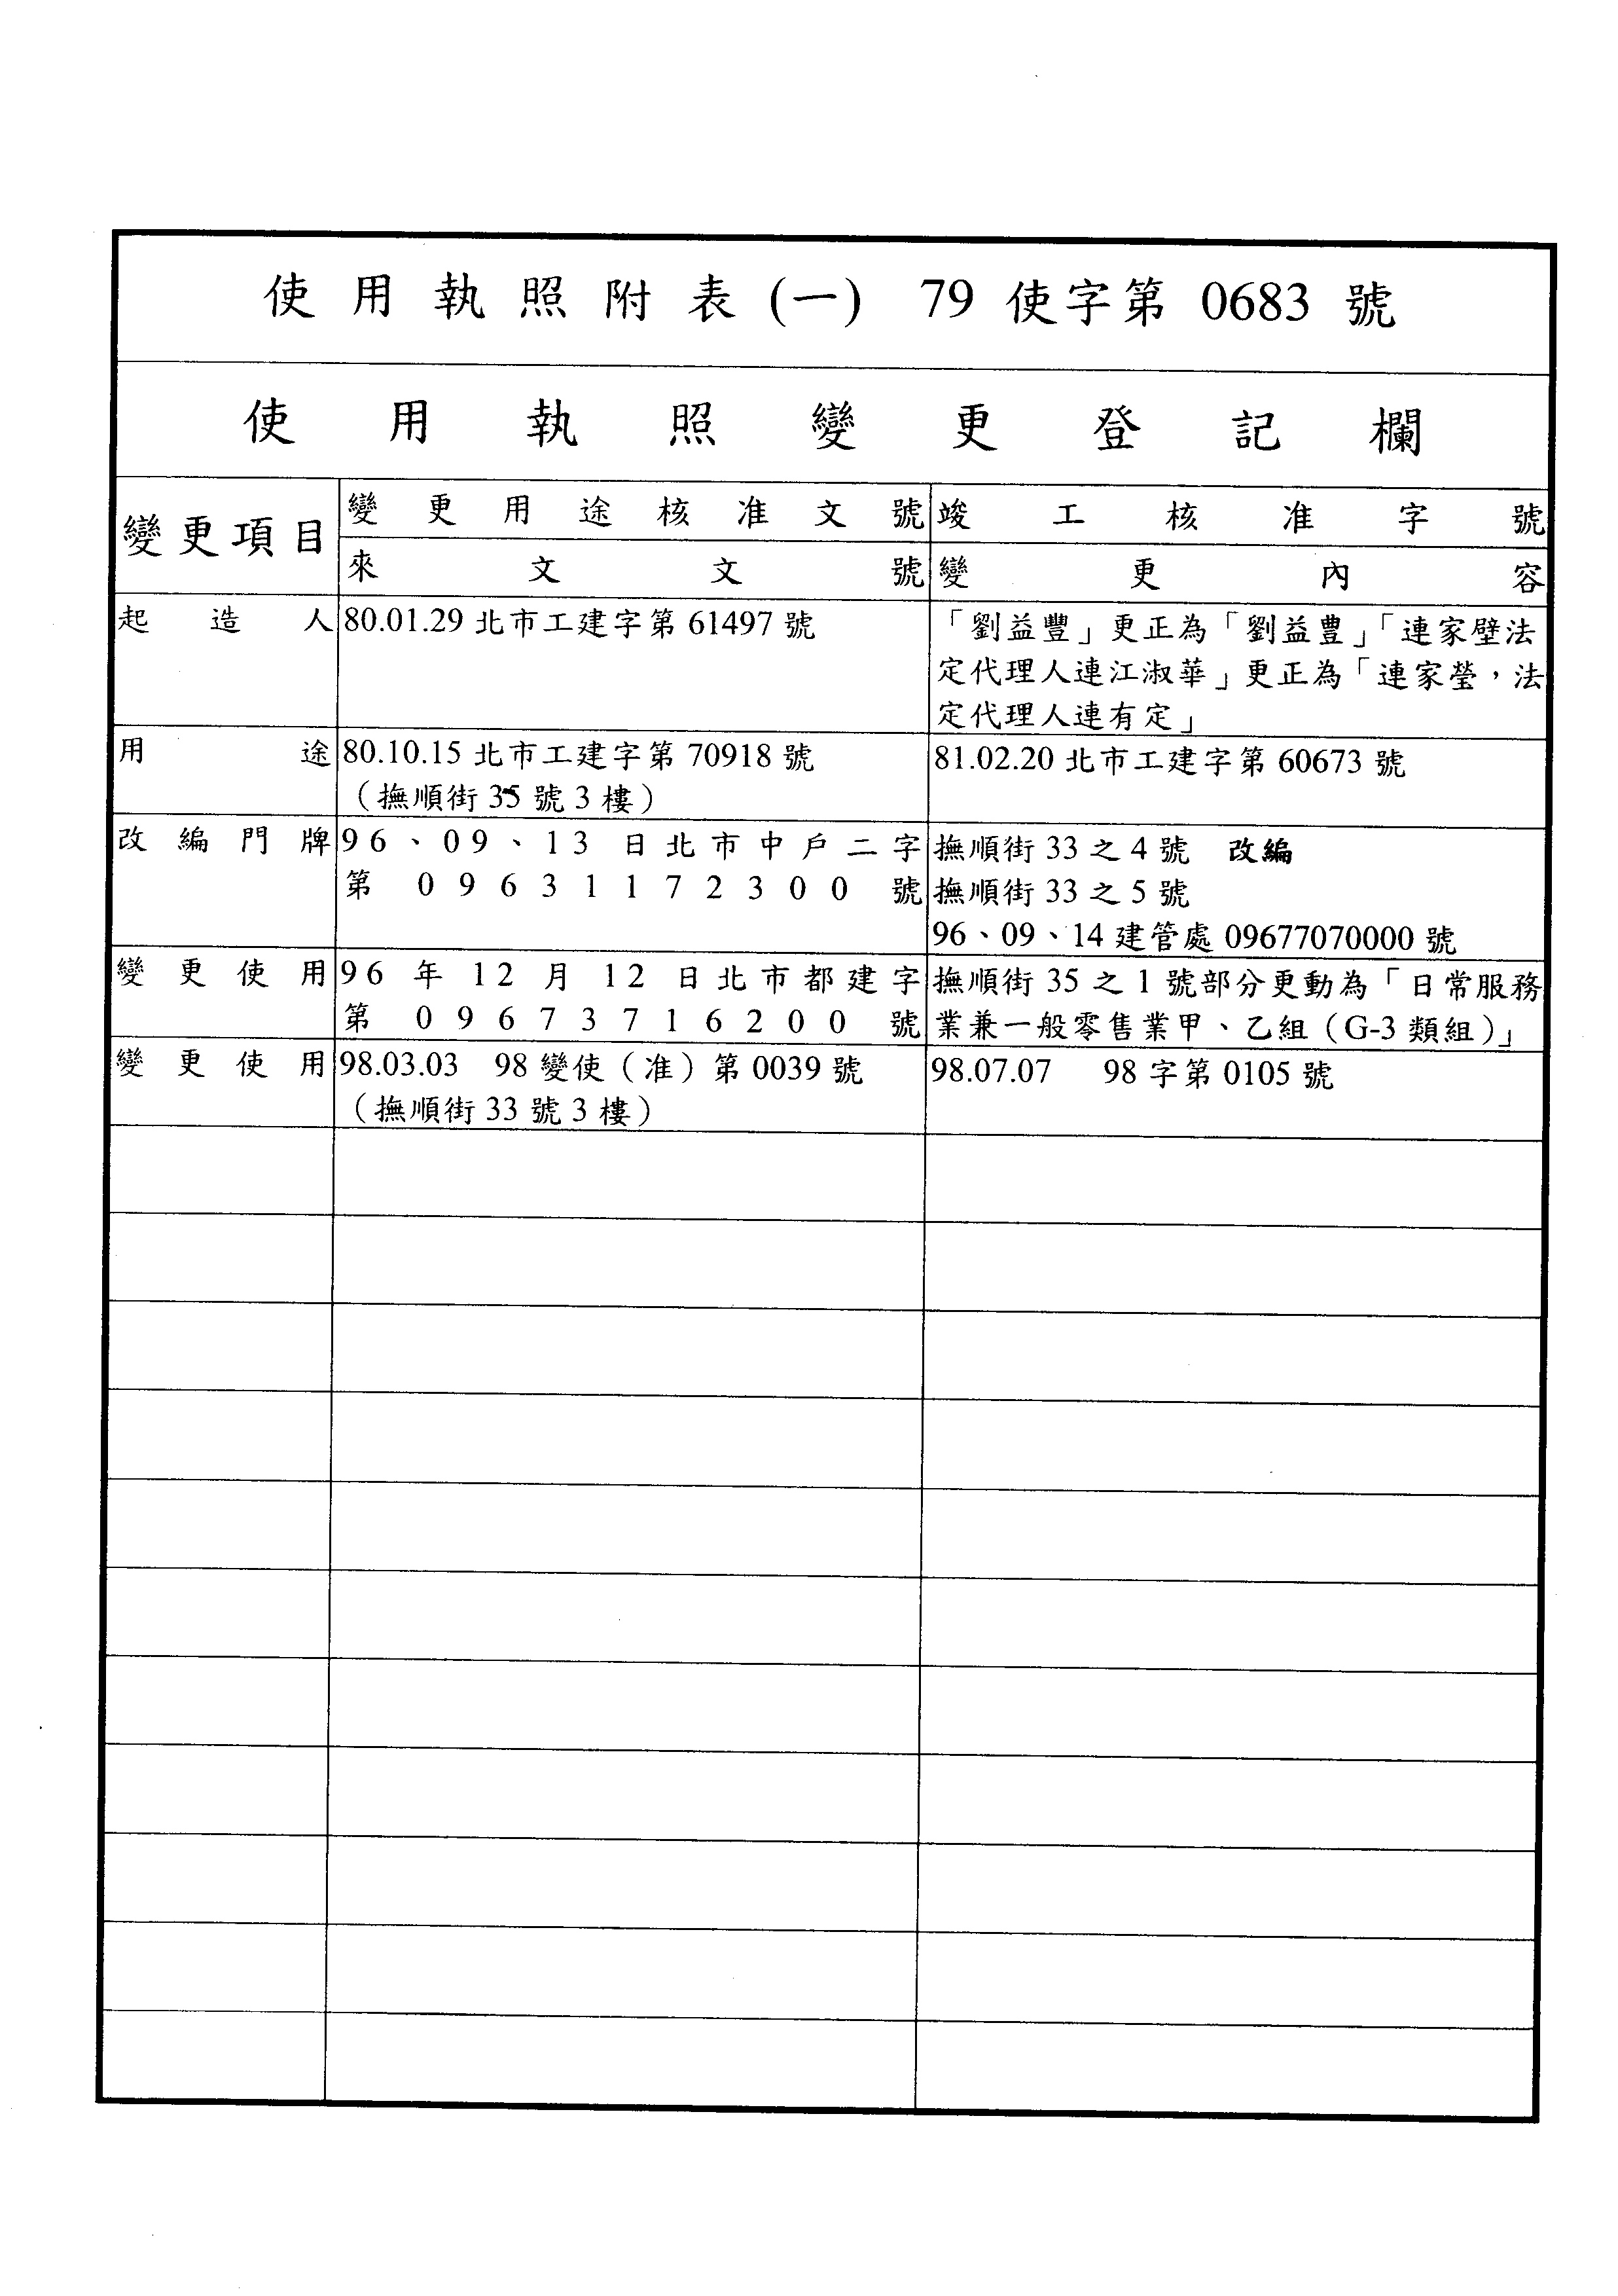 使用執照附表(一) 79 使字第 0683 號
使用執照變更登記欄
變更項目
變更用途核准文號 竣工核准字號
來文文號 變更內容
起造人 80.01.29 北市工建字第 61497 號 「劉益豐」更正為「劉益豊」「連家壁法
定代理人連江淑華」更正為「連家瑩，法
定代理人連有定」
用途 80.10.15 北市工建字第 70918 號 81.02.20 北市工建字第 60673 號
（撫順街 35 號 3 樓）
改編門牌 96、09、13 日北市中戶二字 撫順街 33 之 4 號 改編
第 09631172300 號 撫順街 33 之 5 號
96、09、14 建管處 09677070000 號
變更使用 96 年 12 月 12 日北市都建字 撫順街 35 之 1 號部分更動為「日常服務
第 09673716200 號 業兼一般零售業甲、乙組（G-3 類組）」
變更使用 98.03.03 98 變使（准）第 0039 號 98.07.07 98 字第 0105 號
（撫順街 33 號 3 樓）